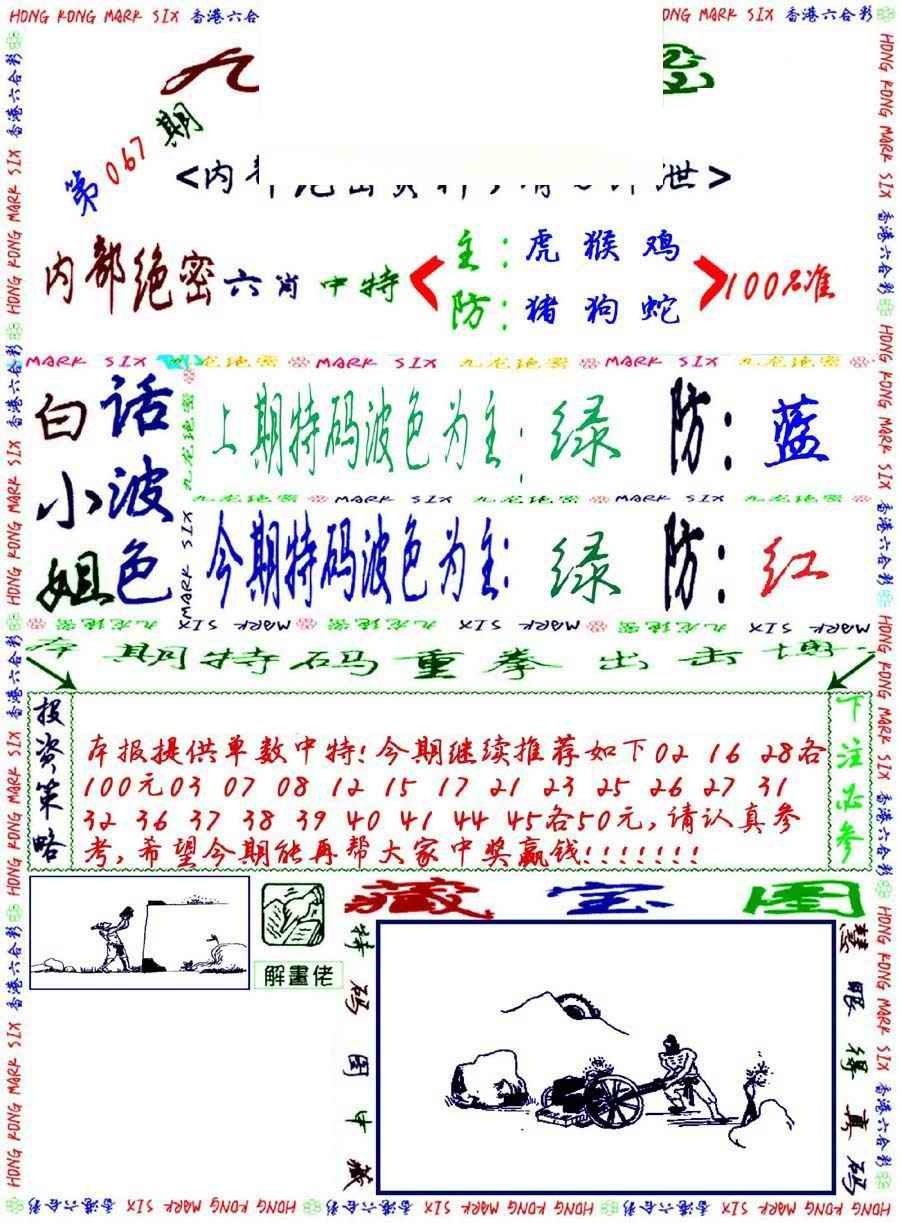 HONG KONG MARK SIX 香港六合彩
第067期
内部绝密六肖中特
主：虎猴鸡
防：猪狗蛇
100%准
MARK SIX 九龙绝密 MARK SIX 九龙绝密 MARK SIX 九龙绝密
白话小波姐色
上期特码波色为主：绿 防：蓝
九龙绝密 MARK SIX 九龙绝密 MARK SIX
今期特码波色为主：绿 防：红
本期特码重拳出击
投资策略
本报提供单数中特!今期继续推荐如下02 16 28各
100元03 07 08 12 15 17 21 23 25 26 27 31
32 36 37 38 39 40 41 44 45各50元,请认真参
考,希望今期能再帮大家中奖赢钱!!!!!!!
下注必参
解畫佬
藏宝图
特码图中藏
慧眼得真码
HONG KONG MARK SIX 香港六合彩